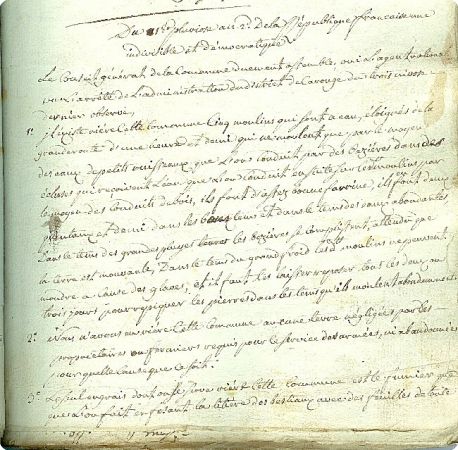 Du 1er Pluviose an 2e de la République francaise une
indivisible et démocratique
Le Conseil général de la Commune duement assemblé, oui l'agent national
vu l'arrêté de l'administration du district de Carouge du trois nivose
dernier observe,
1° Il existe rière cette commune cinq moulins qui sont a eau, éloignés de la
grande route d'une heure et demi qui ne moulent que par le moyen
des eaux de petits ruisseaux que l'on conduit par des bezières dans des
écluses qui reçoivent l'eau que l'on conduit ensuite sur lesdits moulins par
le moyen des conduits de bois, ils font d'assez bonne farine, ils font dans
et demi dans les tems et dans le tems des eaux abondantes
Dans le tems des grandes pluyes toutes les bezières se remplissent, attendu que
la terre est mouvante, Dans le tems du grand froid lesdits moulins ne peuvent
moudre a cause des glaces, et il faut les laisser reposer tous les deux ou
trois jours pour repiquer les pierres dans les tems qu'ils moulent abondamment
2° Nous n'avons en rière cette commune aucune terre négligées par les
propriétaires ou fermiers requis pour le service des armées, ni abandonnées
pour quelle cause que ce soit.
3° Le seul engrais dont on se serve rière cette commune est le fumier que
que l'on fait en faisant la litière des bestiaux avec des feuilles de toute